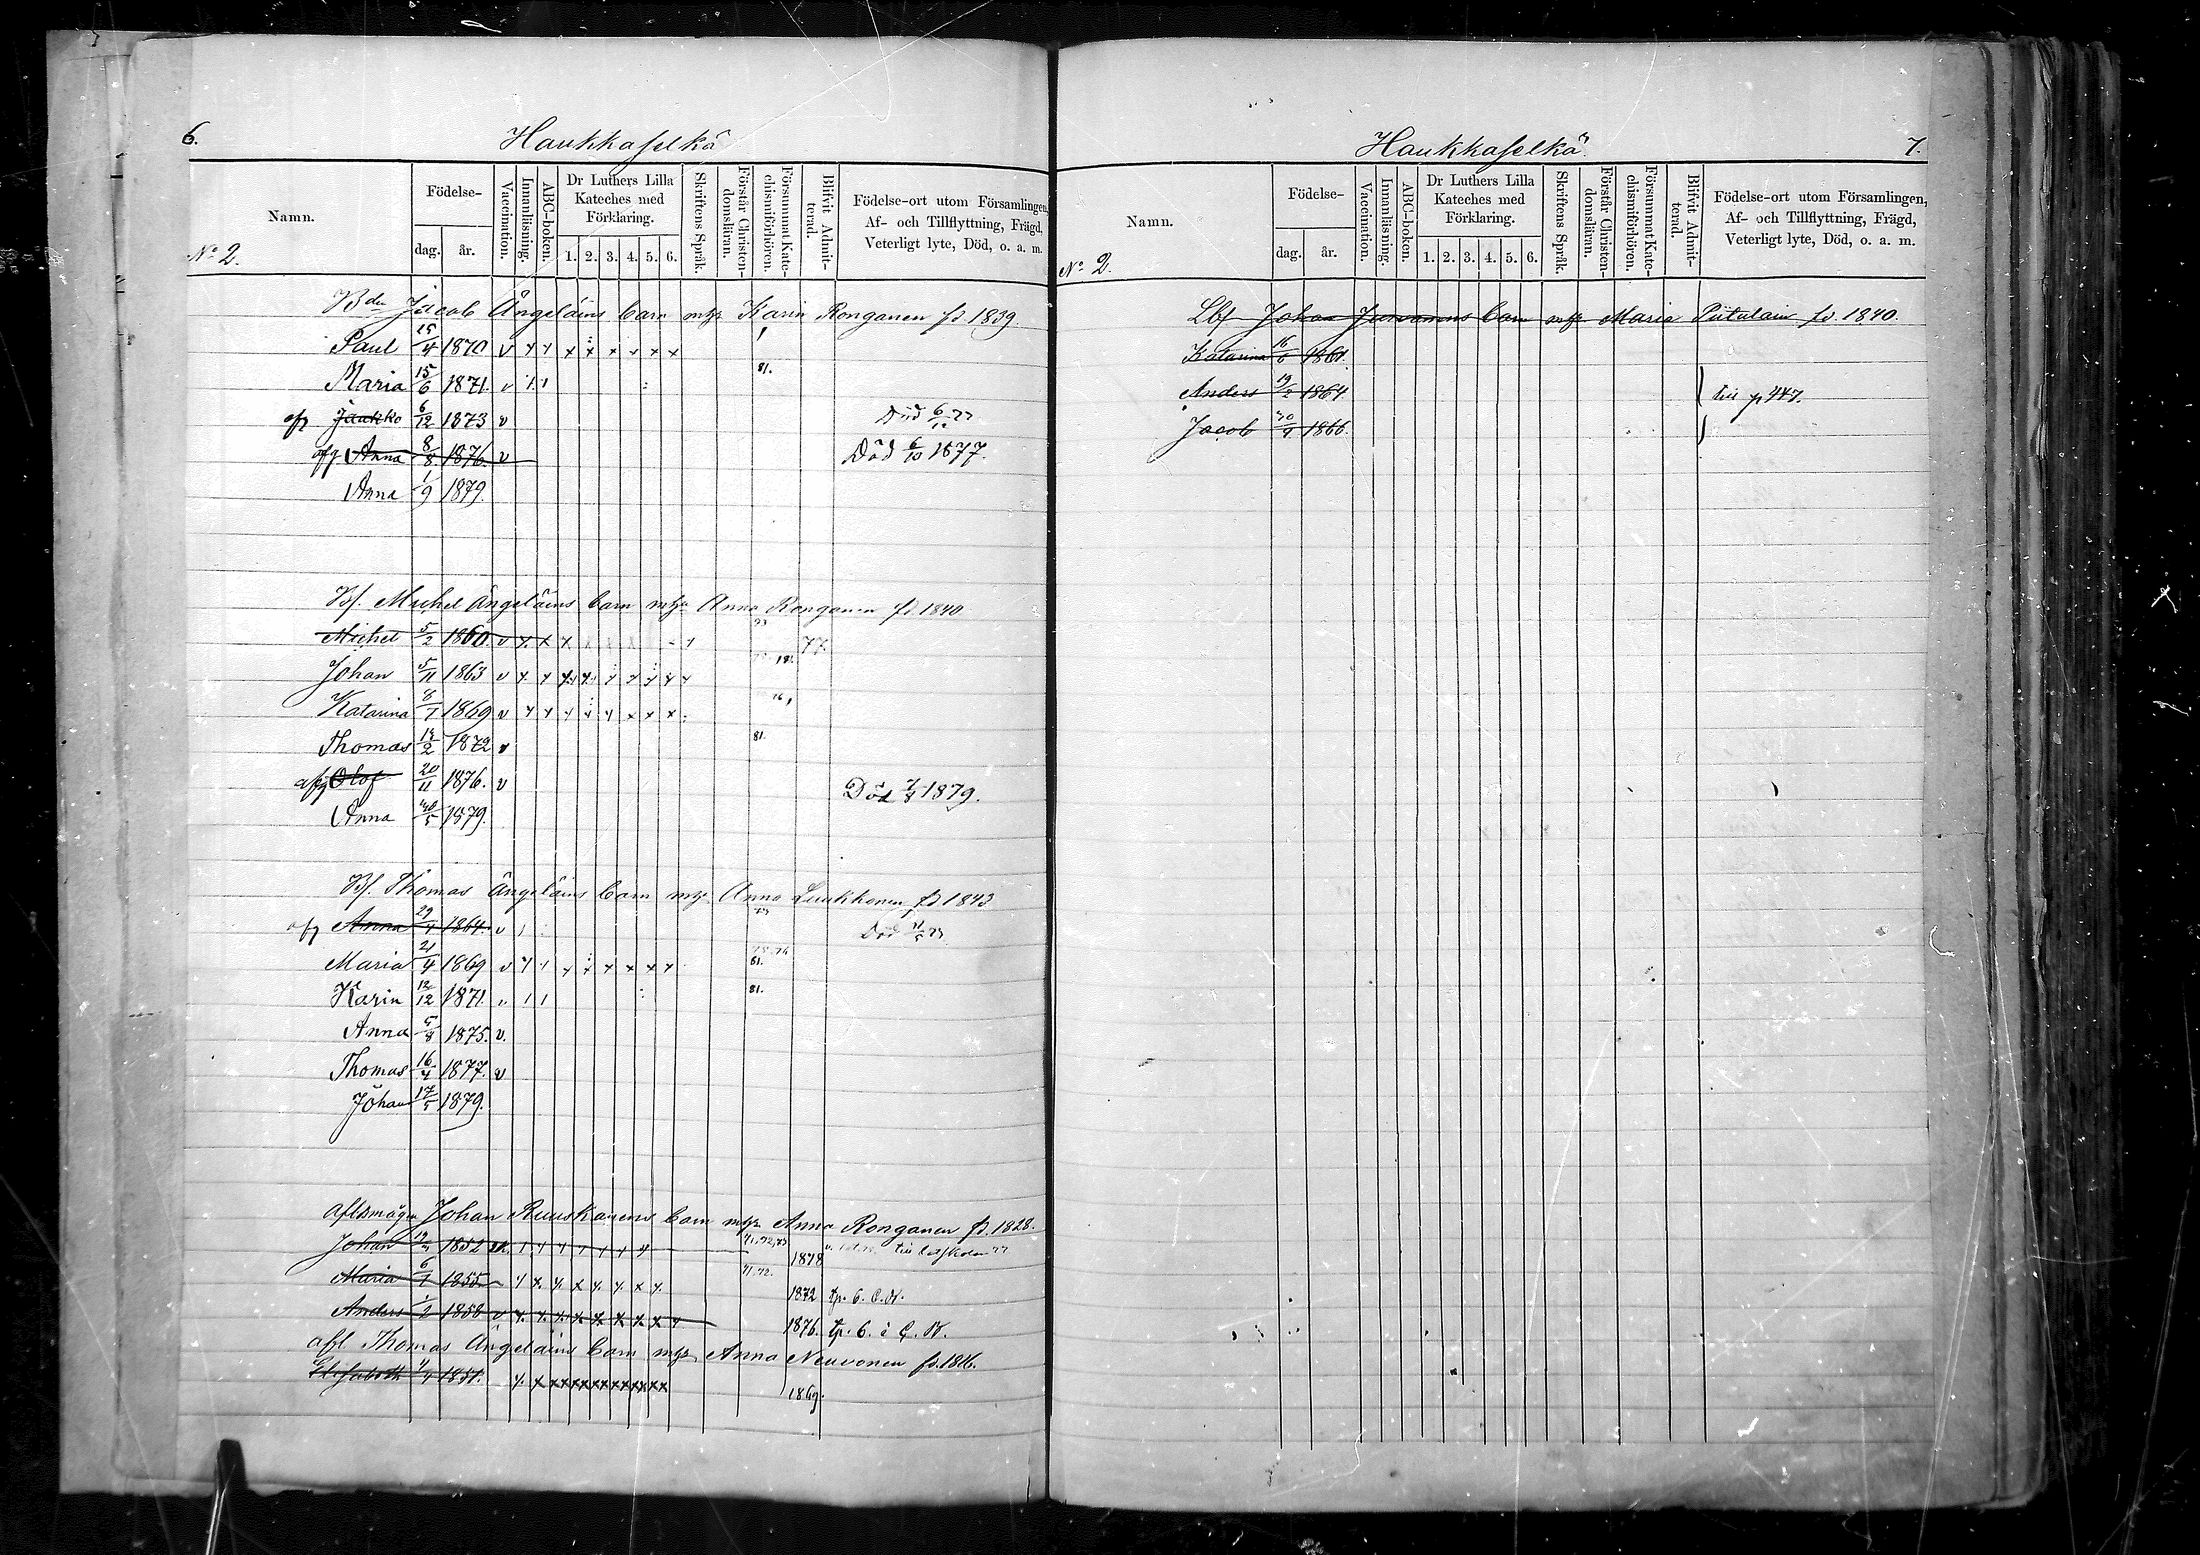 6.
Haukkaselkä
Namn.
Födelse-
dag.
år.
Vaccination.
Innanläsning.
ABC-boken.
Dr Luthers Lilla
Kateches med
Förklaring.
1. 2. 3. 4. 5. 6.
Skriftens Språk.
Förstår Christen-
domsläran.
Försummat Kate-
chismiförhören.
Blifvit Admit-
terad.
Födelse-ort utom Församlingen,
Af- och Tillflyttning, Frägd,
Veterligt lyte, Död, o. a. m.
No 2.
Bdn Jacob Ängeläins barn m Karin Ronganen fd. 1839.
Paul 15/4 1870 v
Maria 15/6 1871. v 81.
afg Jaakko 6/12 1873 v Död 6/12 77
afg Anna 8/8 1876. v Död 6/10 1877.
Anna 1/9 1879.
Bf. Michel Ängeläins barn m Anna Ronganen fd. 1840
Michel 5/2 1860. v 77.
Johan 5/11 1863 v
Katarina 8/7 1869 v 76,
Thomas 1872 v 81.
afg Olof 20/11 1876. v Död 7/8 1879.
Anna 30/5 1879.
Bf. Thomas Ängeläins barn m Anna Luukkonen fd 1843
afg Anna 29 1864. v Död
Maria 21/4 1869 v 81.
Karin 12/12 1871. 81.
Anna 5/8 1875. v.
Thomas 16/4 1877. v
Johan 17/5 1879.
Johan Ruuskanens barn m Anna Ronganen fd. 1828.
Johan 1852 71,72,73 1878
Maria 6/7 1855. 71.72. 1872 tp. 6. C. W.
Anders 1/2 1858 v 1876. tp. 6. i C. W.
afl Thomas Ängeläins barn m Anna Neuvonen fd. 1816.
Elisabeth 1851. 1869.
Haukkaselkä
7.
Namn.
Födelse-
dag.
år.
Vaccination.
Innanläsning.
ABC-boken.
Dr Luthers Lilla
Kateches med
Förklaring.
1. 2. 3. 4. 5. 6.
Skriftens Språk.
Förstår Christen-
domsläran.
Försummat Kate-
chismiförhören.
Blifvit Admit-
terad.
Födelse-ort utom Församlingen,
Af- och Tillflyttning, Frägd,
Veterligt lyte, Död, o. a. m.
No 2.
Lbf Johan barn m Maria Piitulain fd. 1840.
Katarina 16/6 1861.
Anders 19/2 1864. till p 447.
Jacob 30/9 1866.